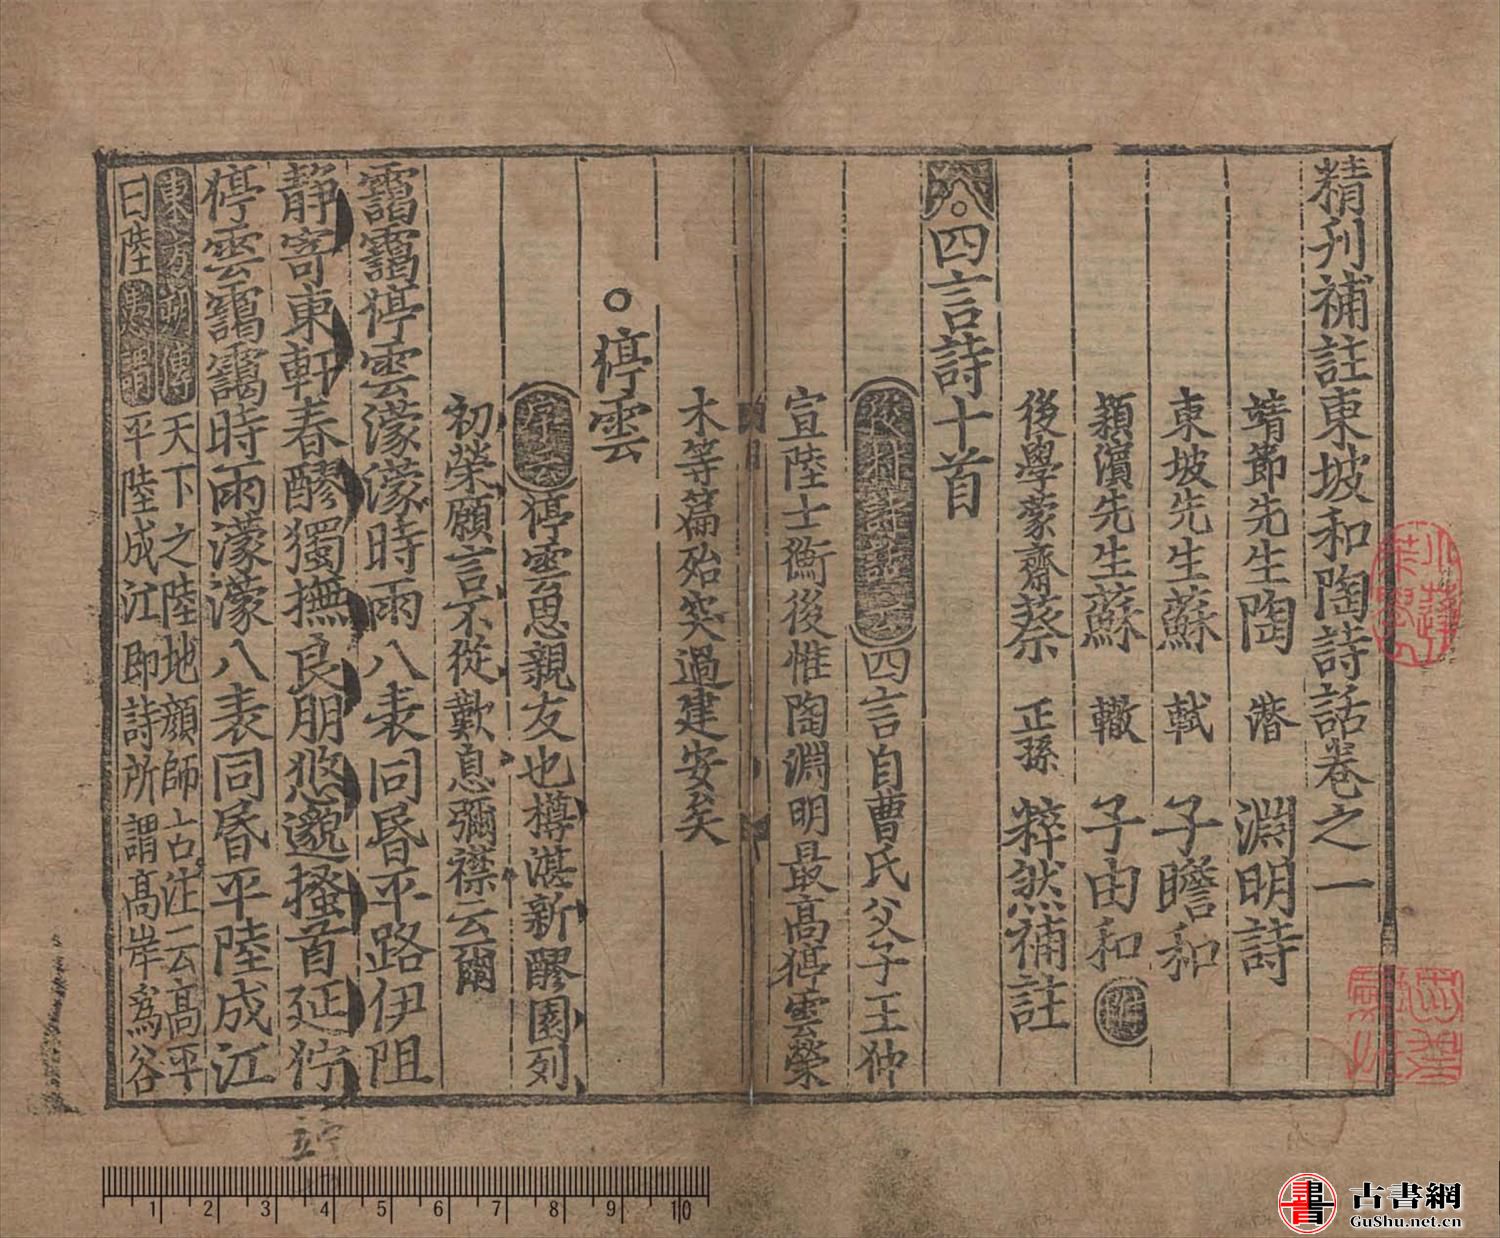 精刋補註東坡和陶詩話卷之一
靖節先生陶 潛 淵明詩
東坡先生蘇 軾 子瞻和
潁濱先生蘇 轍 子由和
後學蒙齋蔡 正孫 粹然補註
四言詩十首
四言自曹氏父子王仲
宣陸士衡後惟陶淵明最高停雲榮
木等篇殆突過建安矣
○停雲
停雲思親友也樽湛新醪園列
初榮願言不從歎息彌襟云爾
靄靄停雲濛濛時雨八表同昏平路伊阻
靜寄東軒春醪獨撫良朋悠邈搔首延佇
停雲靄靄時雨濛濛八表同昏平陸成江
東方朔傳天下之陸地顔師古注云高平
曰陸 平陸成江即詩所謂高岸爲谷
1 2 3 4 5 6 7 8 9 10
古書網
GuShu.net.cn